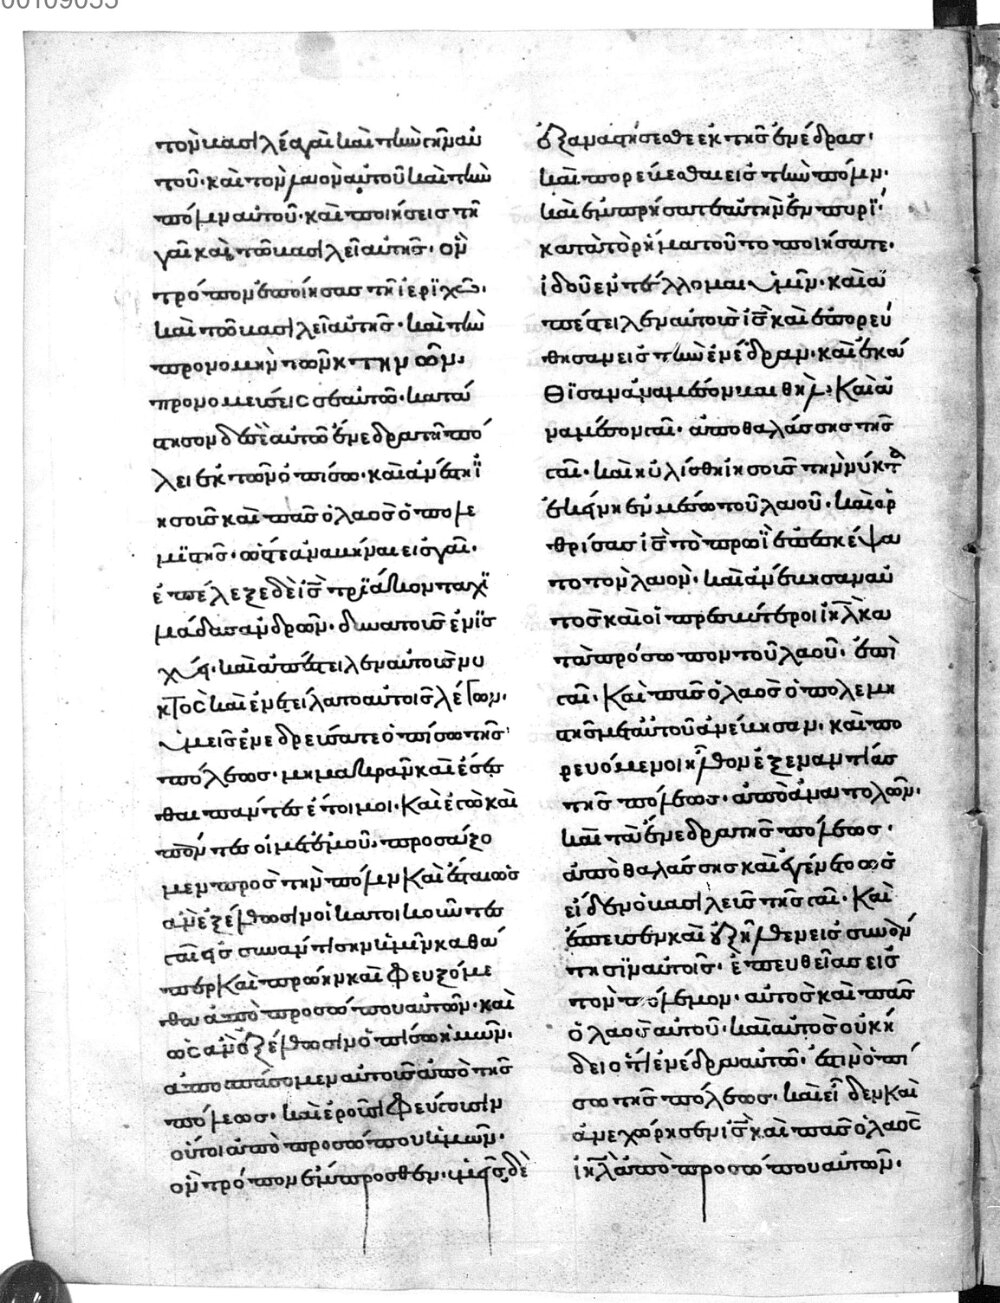 00109055
τὸν βασιλέα γαὶ καὶ τὴν γῆν αὐ
τοῦ· καὶ τὸν λαὸν αὐτοῦ καὶ τὴν
πόλιν αὐτοῦ· καὶ ποιήσεις τῇ
γαὶ καὶ τῶ βασιλεῖ αὐτῆς· ὃν
τρόπον ἐποίησας τῇ ἱεριχῶ·
καὶ τῶ βασιλεῖ αὐτῆς· καὶ τὴν
προνομὴν τῶν κτηνῶν·
προνομεύσεις σεαυτῶ· κατά
στησον δὲ σεαυτῶ ἔνεδρα τῇ πό
λει ἐκ τῶν ὀπίσω· καὶ ἀνέστη ϊ
ησοῦς καὶ πᾶς ὁ λαὸς ὁ πολε
μϊστῆς· ὥστε ἀναβῆναι εἰς γαΐ·
ἐπέλεξε δὲ ἰ̅ς̅ τρϊάκοντα χϊ
λιάδας ἀνδρῶν· δυνατοὺς ἐν ἰσ
χύϊ· καὶ ἀπέστειλεν αὐτοὺς νυ
κτὸς καὶ ἐνετείλατο αὐτοῖς λέγων·
ὑμεῖς ἐνεδρεύσατε ὀπίσω τῆς
πόλεως· μὴ μακρὰν καὶ ἔσεσ
θαι πάντες ἕτοιμοι· καὶ ἐγὼ καὶ
πάντες οἱ μετ' ἐμοῦ, προσάξο
μεν πρὸς τὴν πόλιν καὶ ἔσται ὡς
ἂν ἐξέλθωσιν οἱ κατοικοῦντες
γαῒ εἰς συνάντησιν ἡμῖν καθά
περ καὶ πρώην καὶ φευξόμε
θα ἀπὸ προσώπου αὐτῶν· καὶ
ὡς ἂν ἐξέλθωσιν ὀπίσω ἡμῶν·
ἀποσπάσομεν αὐτοὺς ἀπὸ τῆς
πόλεως· καὶ ἐροῦσι φεύγουσιν
οὗτοι ἀπὸ προσώπου ἡμῶν·
ὃν τρόπον ἔμπροσθεν· ὑμεῖς δὲ
ἐξαναστήσεσθε ἐκ τῆς ἐνέδρας·
καὶ πορεύεσθαι εἰς τὴν πόλιν·
καὶ ἐμπρήσατε αὐτὴν ἐν πυρΐ·
κατὰ τὸ ῥῆμα τοῦτο ποιήσατε·
ἰδοὺ ἐντέλλομαι ὑμῖν· καὶ ἀ
πέστειλεν αὐτοὺς ἰ̅ς̅ καὶ ἐπορεύ
θησαν εἰς τὴν ἐνέδραν· καὶ ἐκά
θϊσαν ἀναμέσον βαιθὴλ· καὶ ἀ
ναμέσον γαΐ· ἀπὸ θαλάσσης τῆς
γαΐ· καὶ ηὐλίσθη ἰησοῦς τὴν νύκτα
ἐκείνη ἐν μέσω τοῦ λαοῦ· καὶ ὀρ
θρίσας ἰ̅ς̅ τὸ πρωῒ ἐπεσκέψα
το τὸν λαὸν· καὶ ἀνέβησαν αὐ
τὸς καὶ οἱ πρεσβύτεροι ἰη̅λ̅ κα
τὰ πρόσωπον τοῦ λαοῦ· ἐπὶ
γαΐ· καὶ πᾶς ὁ λαὸς ὁ πολεμι
στὴς μετ' αὐτοῦ ἀνέβησαν· καὶ πο
ρευόμενοι ἦλθον ἐξεναντίας
τῆς πόλεως· ἀπὸ ἀνατολῶν·
καὶ τὰ ἔνεδρα τῆς πόλεως·
ἀπὸ θαλάσσης καὶ ἐγένετο ὡς
εἶδεν ὁ βασιλεὺς τῆς γαΐ· καὶ
ἔσπευσεν καὶ ἐξῆλθεν εἰς συνάν
τησϊν αὐτοῖς· ἐπευθείας εἰς
τὸν πόλεμον· αὐτὸς καὶ πᾶς
ὁ λαὸς αὐτοῦ· καὶ αὐτὸς οὐκ ἤ
δει ὅτι ἔνεδρα αὐτῶ ἐστιν ὀπί
σω τῆς πόλεως· καὶ εἶδεν καὶ
ἀνεχώρησεν ἰ̅ς̅ καὶ πᾶς ὁ λαὸς
ἰη̅λ̅ ἀπὸ προσώπου αὐτῶν·